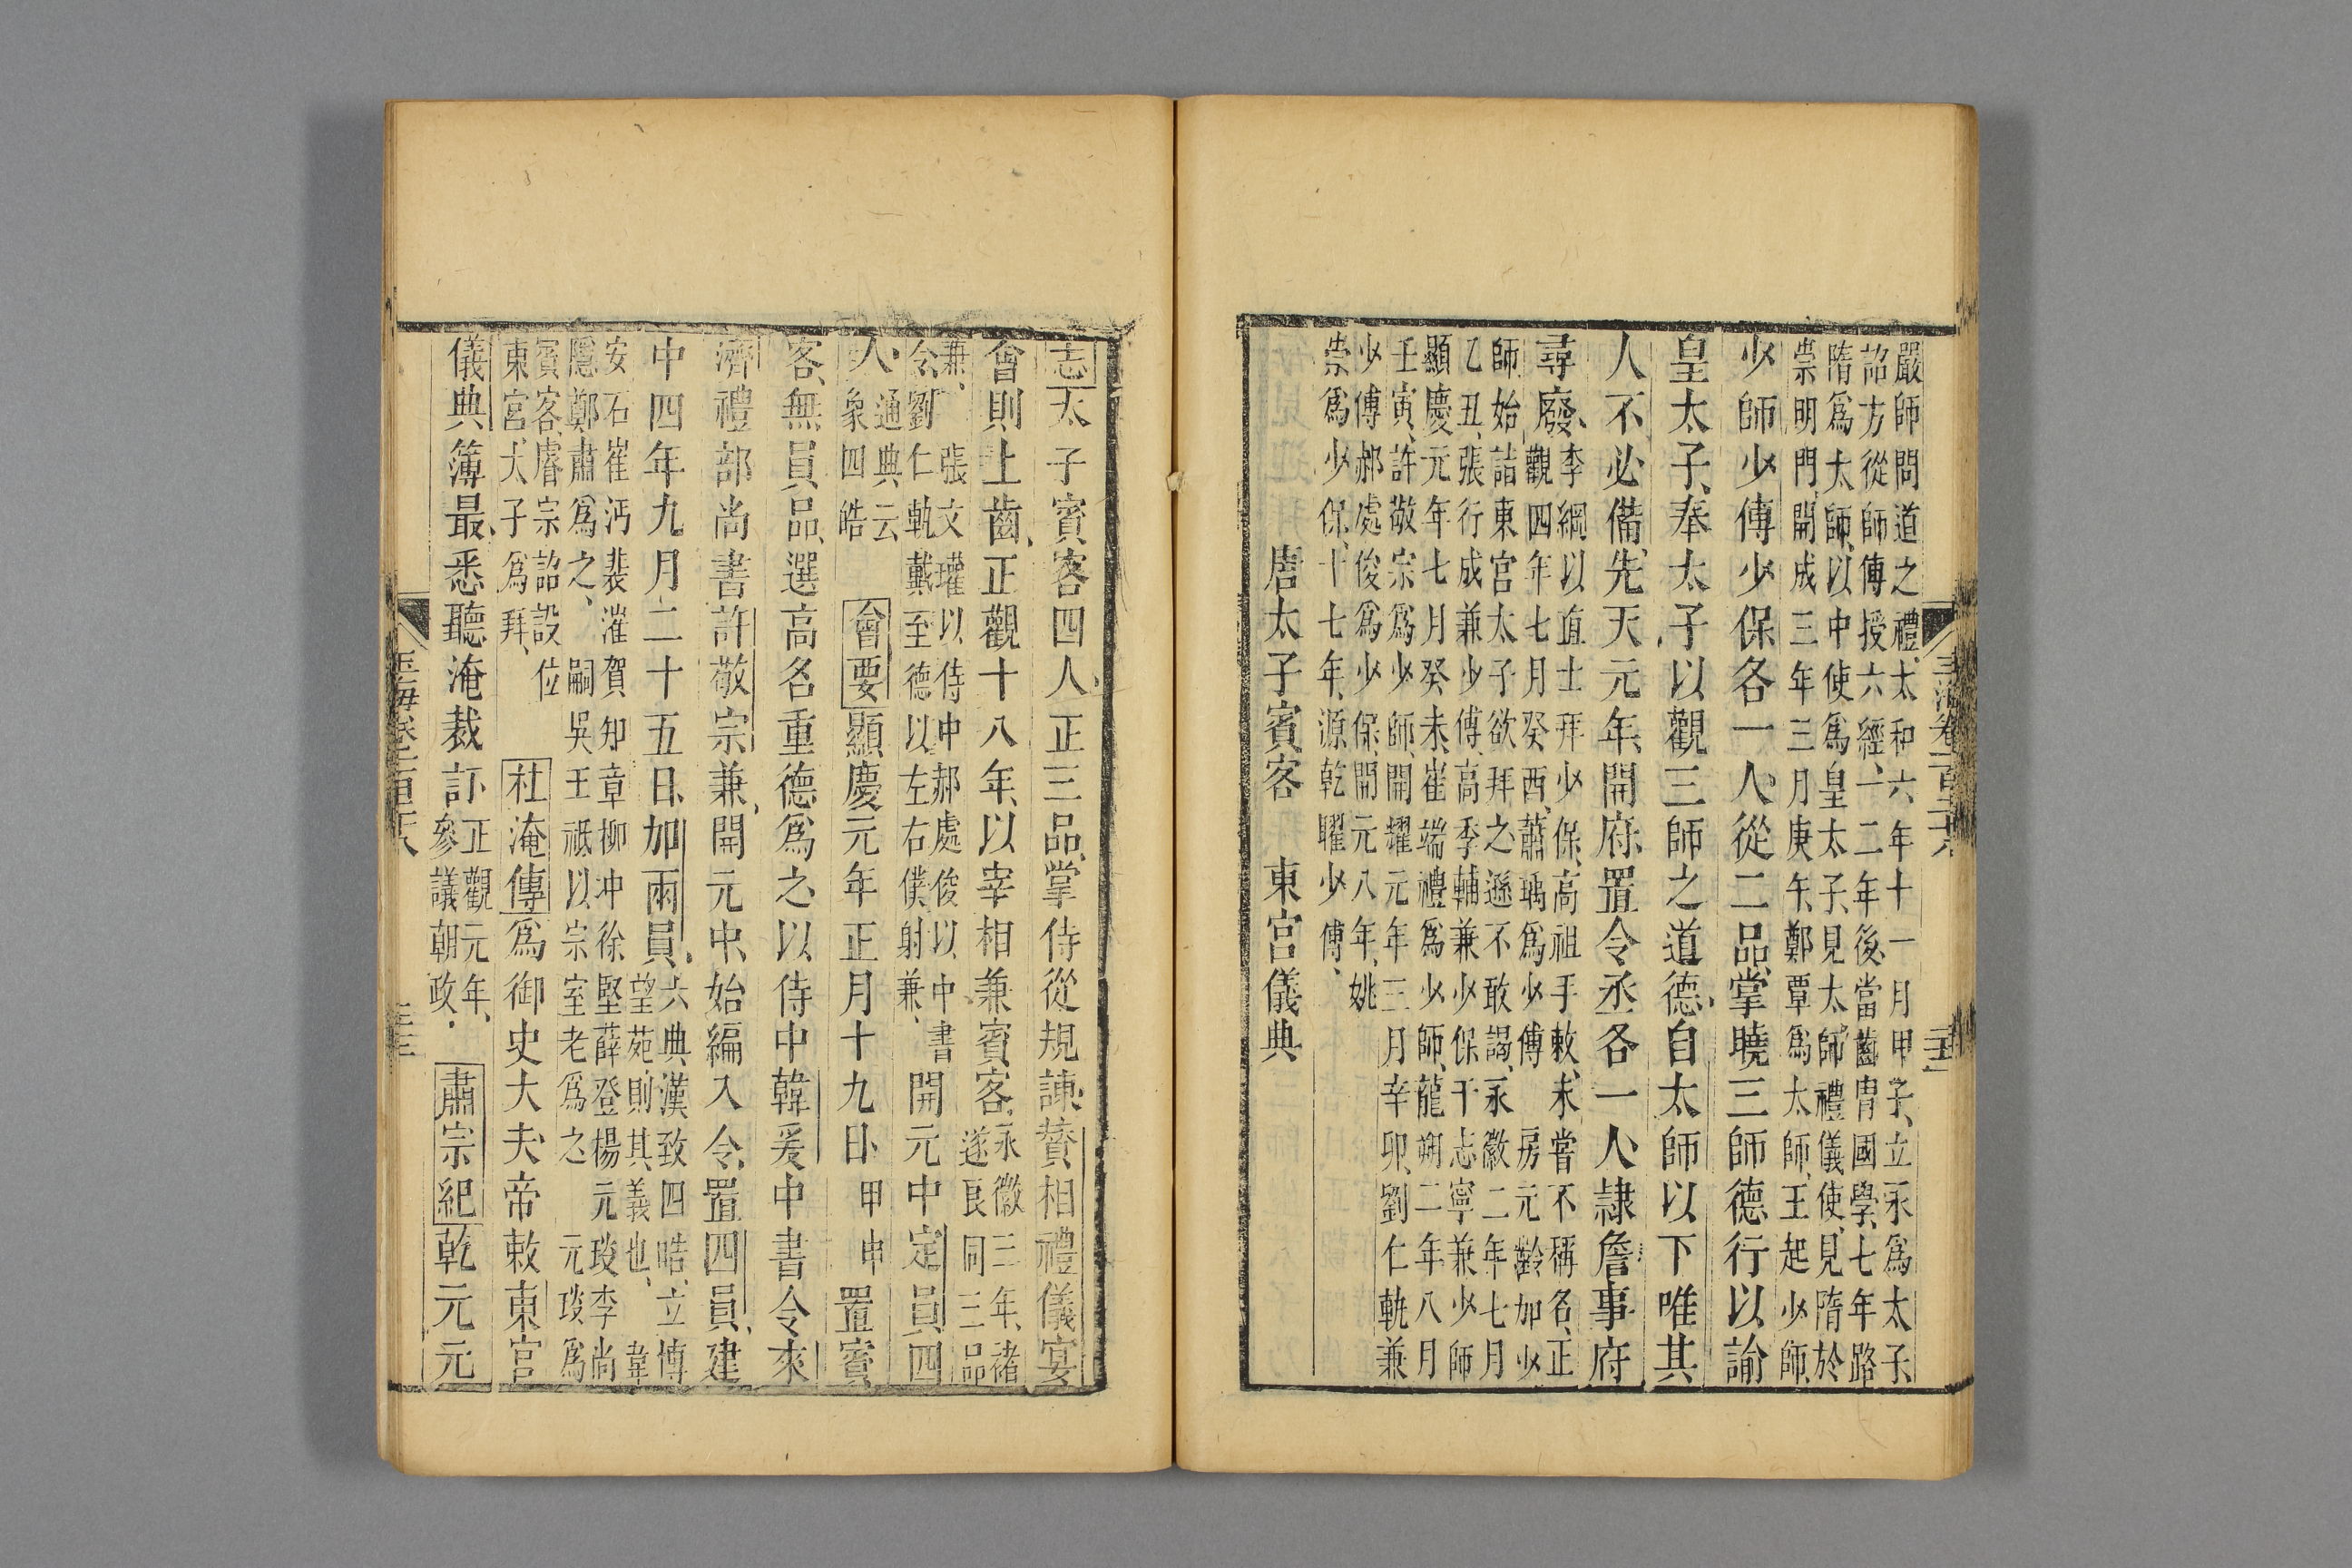 嚴師問道之禮太和六年十一月甲子立永爲太子
詔方從師傅授六經一二年後當齒冑國學七年路
隋爲太師以中使爲皇太子見太師禮儀使見隋於
崇明門開成三年三月庚午鄭覃爲太師王起少師
少師少傅少保各一人從二品掌曉三師德行以諭
皇太子奉太子以觀三師之道德自太師以下唯其
人不必備先天元年開府置令丞各一人隷詹事府
尋廢
李綱以直士拜少保高祖手敕未嘗不稱名正
觀四年七月癸酉蕭瑀爲少傅房元齡加少
師始詣東宮太子欲拜之遜不敢謁永徽二年七月
乙丑張行成兼少傅高季輔兼少保于志寧兼少師
顯慶元年七月癸未崔端禮爲少師龍朔二年八月
壬寅許敬宗爲少師開耀元年三月辛卯劉仁軌兼
少傅郝處俊爲少保開元八年姚
崇爲少保十七年源乾曜少傅
唐太子賓客　東宮儀典
志太子賓客四人正三品掌侍從規諫贊相禮儀宴
會則上齒正觀十八年以宰相兼賓客
永徽三年褚
遂良同三品
兼張文瓘以侍中郝處俊以中書
令劉仁軌戴至德以左右僕射兼
開元中定員四
人
通典云
象四皓
會要顯慶元年正月十九日甲申置賓
客無員品選高名重德爲之以侍中韓爰中書令來
濟禮部尚書許敬宗兼開元中始編入令置四員建
中四年九月二十五日加兩員
六典漢致四皓立博
望苑則其義也韋
安石崔沔裴漼賀知章柳冲徐堅薛登楊元琰李尚
隱鄭肅爲之嗣吳王祗以宗室老爲之元琰爲
賓客睿宗詔設位
東宮太子爲拜
杜淹傳爲御史大夫帝敕東宮
儀典簿最悉聽淹裁訂
正觀元年
參議朝政
肅宗紀乾元元